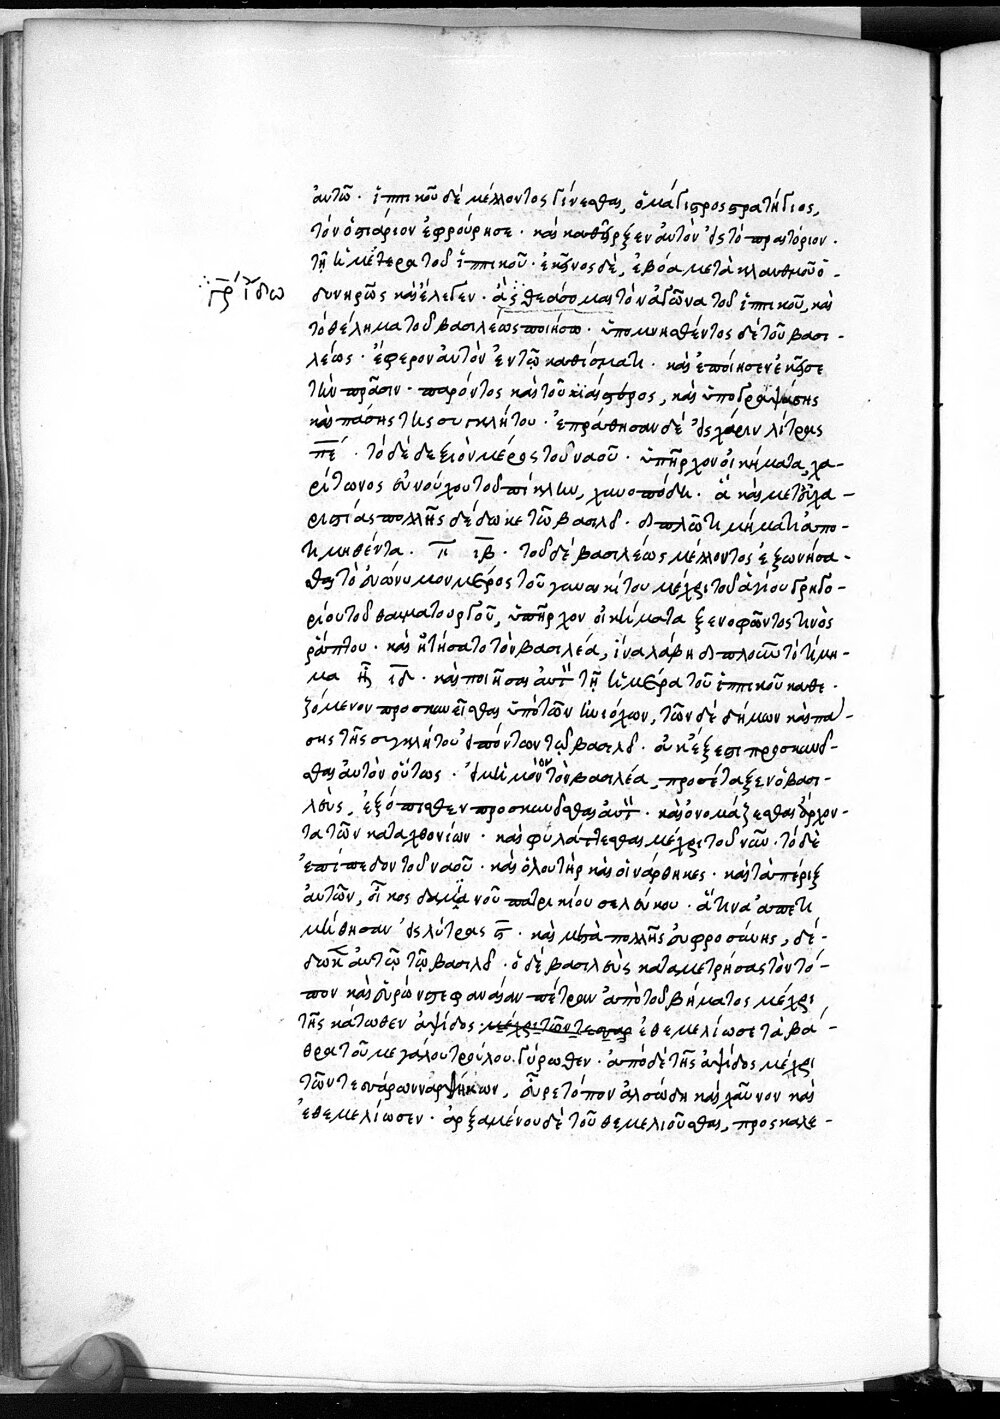 αὐτῶ · ἱππικοῦ δὲ μέλλοντος γίνεσθαι, ὁ μάγιστρος στρατήγιος,
τὸν ὀστιάριον ἐφρούρησε · καὶ καθῆρξεν αὐτὸν εἰς τὸ πραιτόριον ·
τῆ ἡμέτερα τοῦ ἱππικοῦ · ἐκεῖνος δὲ, ἐβόα μετὰ κλαυθμοῦ ὀ-
δυνηρῶς καὶ ἔλεγεν · ἂς θεάσομαι τὸν ἀγῶνα τοῦ ἱππικοῦ, καὶ
γρ ἴδω
τὸ θέλημα τοῦ βασιλέως ποιήσω · ὑπομνησθέντος δὲ τοῦ βασι-
λέως · ἔφερον αὐτὸν ἐν τῶ καθίσματι · καὶ ἐποίησεν ἐκεῖσε
τὴν πρᾶσιν · παρόντος καὶ τοῦ κιαίστορος, καὶ ὑπογραψάσης
καὶ πάσης τῆς συγκλήτου · ἐπράθησαν δὲ εἰς χάριν λίτρας
πε · τὸ δὲ δεξιὸν μέρος τοῦ ναοῦ · ὑπῆρχον οἰκήματα, χα-
ρίτωνος εὐνούχου τοὐπίκλην, χηνοπόδη · ἃ καὶ μετ' εὐχα-
ριστίας πολλῆς δέδωκε τῶ βασιλεῖ · διπλῶ τιμήματι ἀπο-
τιμηθέντα · π ιβ · τοῦ δὲ βασιλέως μέλλοντος ἐξωνήσα-
σθαι τὸ εὐώνυμον μέρος τοῦ γυναικίτου μέχρι τοῦ ἁγίου γρηγο-
ρίου τοῦ θαυματουργοῦ, ὑπῆρχον οἰκήματα ξενοφῶντος τινὸς
ῥάπτου · καὶ ἠτήσατο τὸν βασιλέα, ἵνα λάβη διπλοῦν τὸ τίμη-
μα ιδ · καὶ ποιῆσαι αὐτ τῆ ἡμέρα τοῦ ἱππικοῦ καθε-
ζόμενον προσκυνεῖσθαι ὑπὸ τῶν ἡνιόχων, τῶν δὲ δήμων καὶ πά-
σης τῆς συγκλήτου εἰπόντων τῶ βασιλεῖ · οὐκ ἔξεστι προσκυνεῖ-
σθαι αὐτὸν οὕτως · εἰ μὴ μόνον τὸν βασιλέα, προσέταξεν ὁ βασι-
λεὺς, ἐξόπισθεν προσκυνεῖσθαι αὐτ · καὶ ὀνομάζεσθαι ἄρχον-
τα τῶν καταχθονίων · καὶ φυλάττεσθαι μέχρι τοῦ νῦν · τὸ δὲ
ἐπίπεδον τοῦ ναοῦ · καὶ ὁ λουτὴρ καὶ οἱ νάρθηκες · καὶ τὰ πέριξ
αὐτῶν, οἶκος δαμιανοῦ πατρικίου σελεύκου · ἅτινα ἀπετι-
μήθησαν εἰς λύτρας · καὶ μετὰ πολλῆς εὐφροσύνης, δέ-
δωκ αὐτῶ τῶ βασιλεῖ · ὁ δὲ βασιλεὺς καταμετρήσας τὸν τό-
πον καὶ εὑρὼν στεφαναίαν πέτραν ἀπὸ τοῦ βήματος μέχρι
τῆς κάτωθεν ἀψίδος μέχρι τῶν τεσσαρ ἐθεμελίωσε τὰ βά-
θρα τοῦ μεγάλου τρούλου γύρωθεν · ἀπὸ δὲ τῆς ἀψίδος μέχρι
τῶν τεσσάρων ναρθήκων, εὗρε τόπον ἀλσώδη καὶ χαῦνον καὶ
ἐθεμελίωσεν · ἀρξαμένου δὲ τοῦ θεμελιοῦσθαι, προσκαλε-